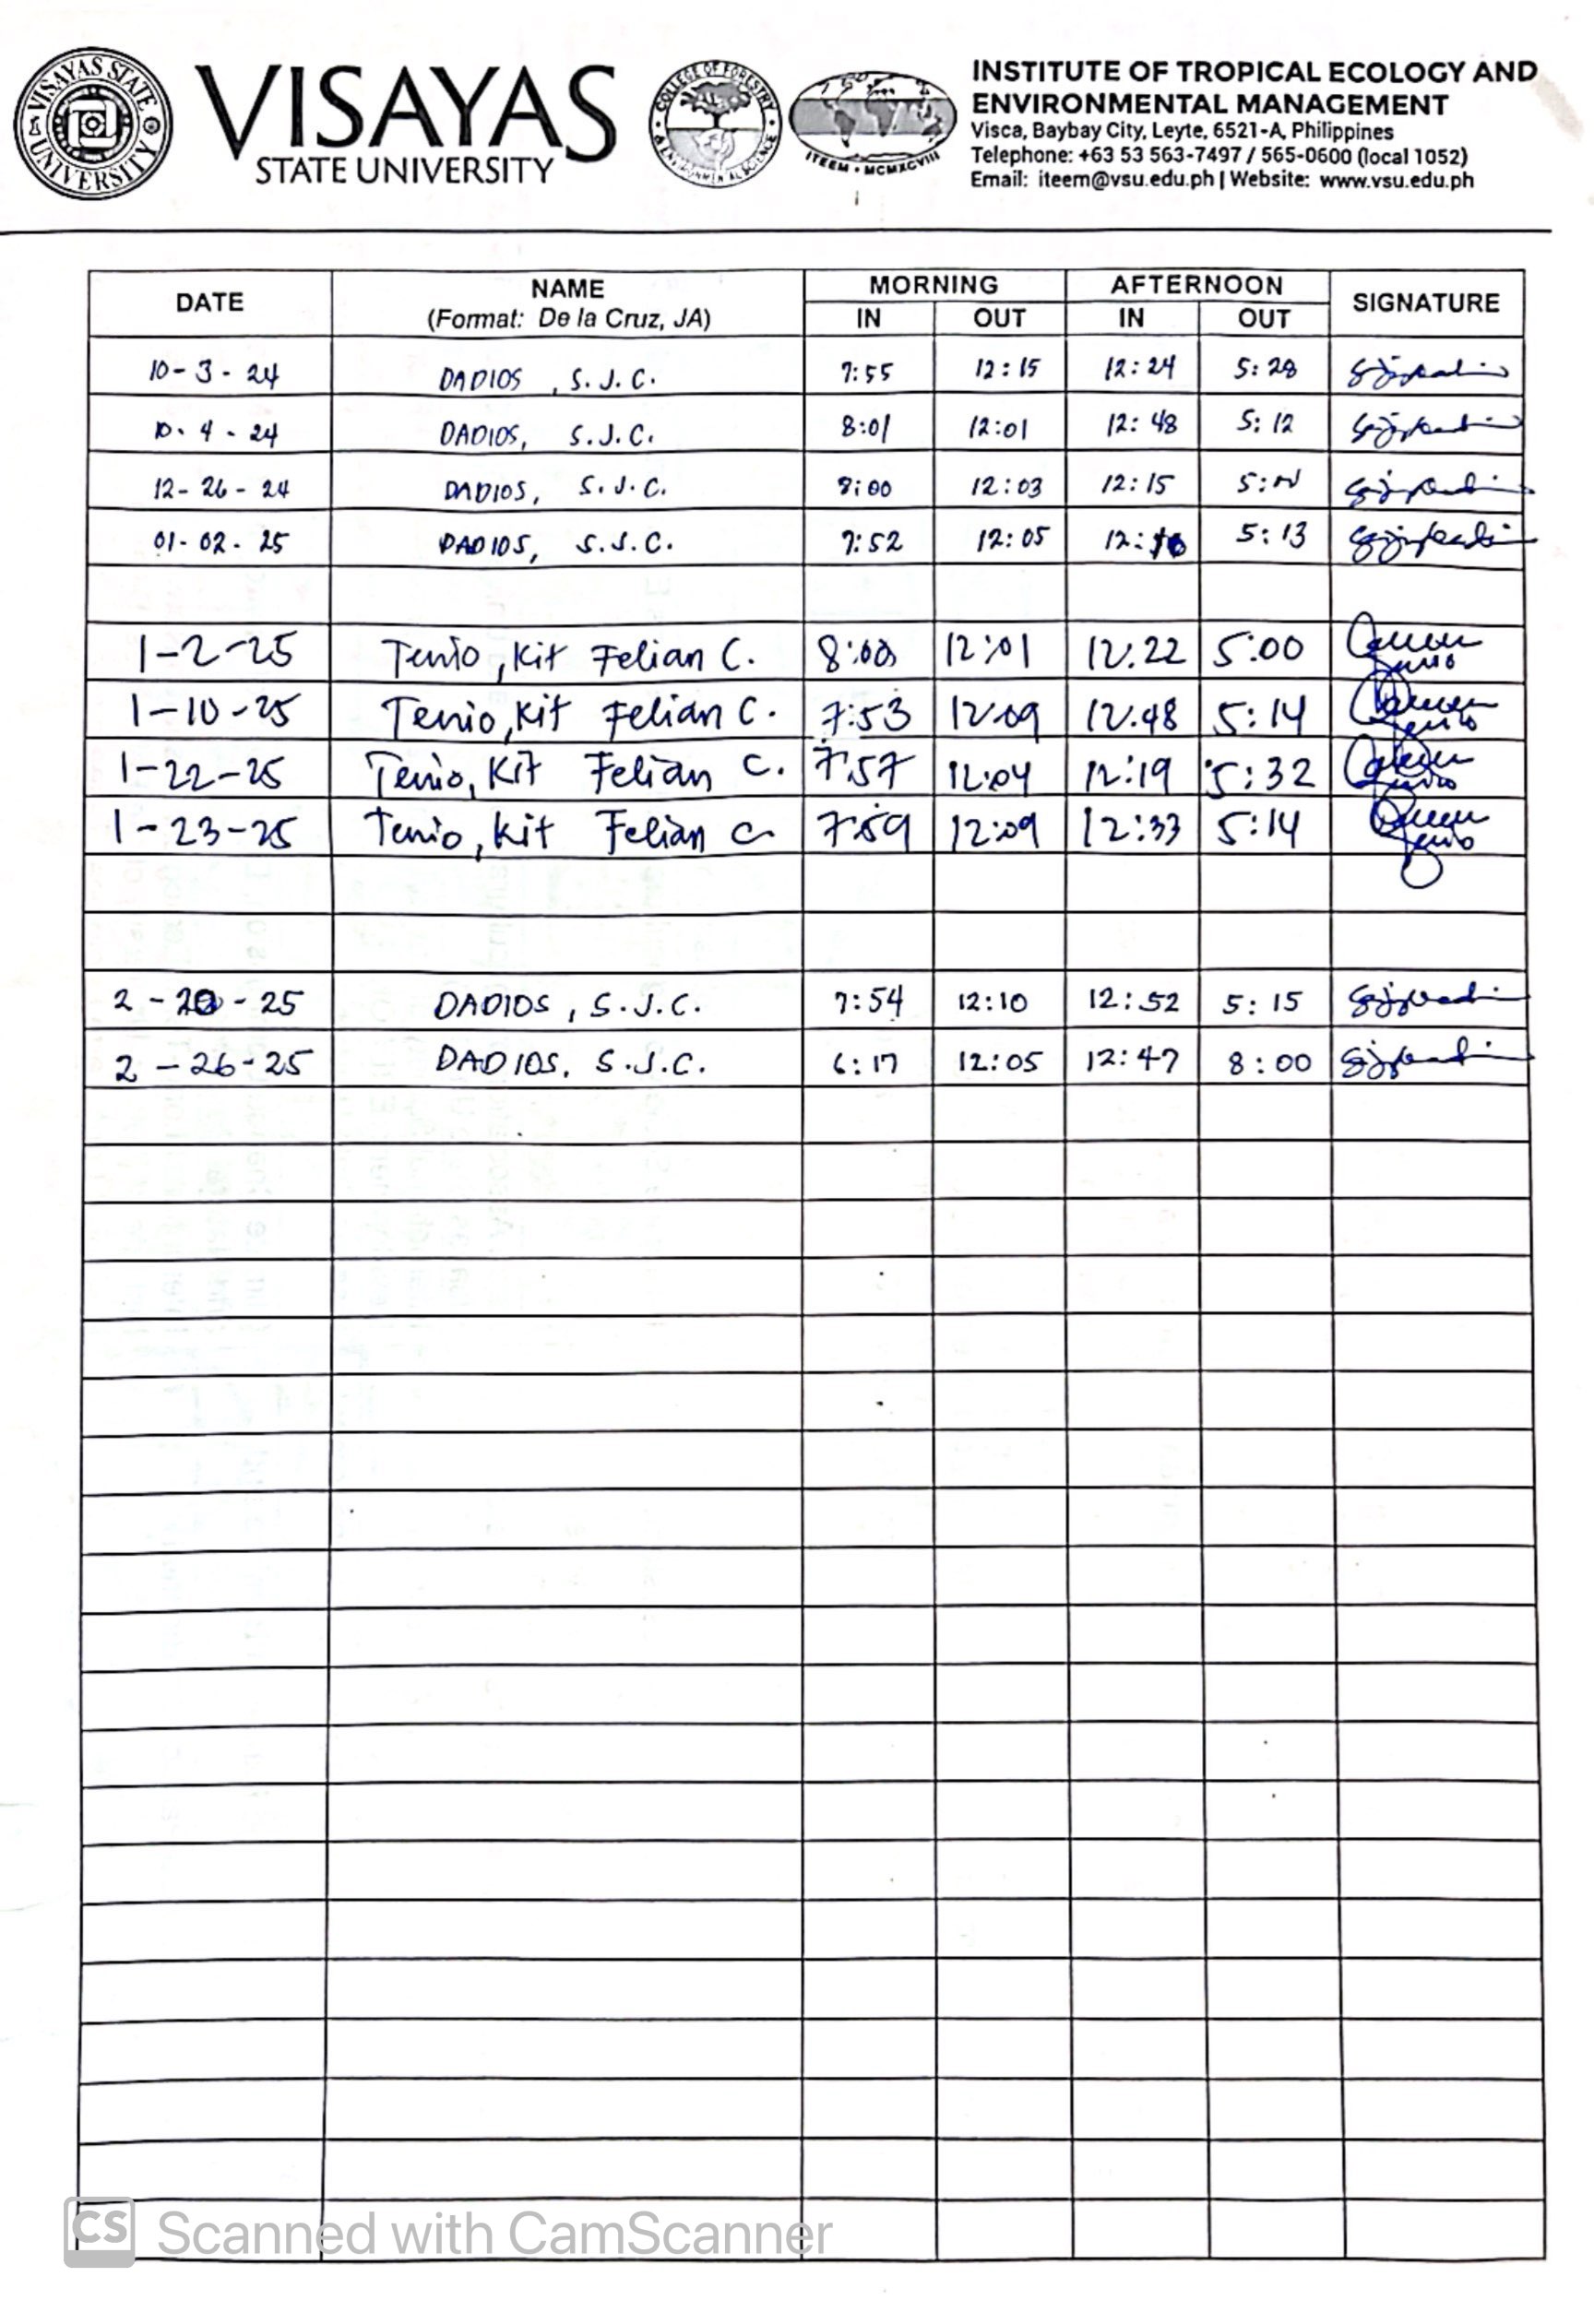 VISAYAS STATE UNIVERSITY
VISAYAS
STATE UNIVERSITY
COLLEGE OF FORESTRY & ENVIRONMENTAL SCIENCE
ITEEM • MCMXCVIII
INSTITUTE OF TROPICAL ECOLOGY AND
ENVIRONMENTAL MANAGEMENT
Visca, Baybay City, Leyte, 6521-A, Philippines
Telephone: +63 53 563-7497 / 565-0600 (local 1052)
Email: iteem@vsu.edu.ph | Website: www.vsu.edu.ph
DATE NAME MORNING AFTERNOON SIGNATURE
(Format: De la Cruz, JA) IN OUT IN OUT
10-3-24 DADIOS, S.J.C. 7:55 12:15 12:24 5:28
10-4-24 DADIOS, S.J.C. 8:01 12:01 12:48 5:12
12-26-24 DADIOS, S.J.C. 8:00 12:03 12:15
01-02-25 DADIOS, S.J.C. 7:52 12:05 5:13
1-2-25 Tenio, Kit Felian C. 8:00 12:01 12:22 5:00
1-10-25 Tenio, Kit Felian C. 7:53 12:09 12:48 5:14
1-22-25 Tenio, Kit Felian C. 7:57 12:04 12:19 5:32
1-23-25 Tenio, Kit Felian C. 7:59 12:09 12:33 5:14
2-20-25 DADIOS, S.J.C. 7:54 12:10 12:52 5:15
2-26-25 DADIOS, S.J.C. 6:17 12:05 12:47 8:00
CS Scanned with CamScanner